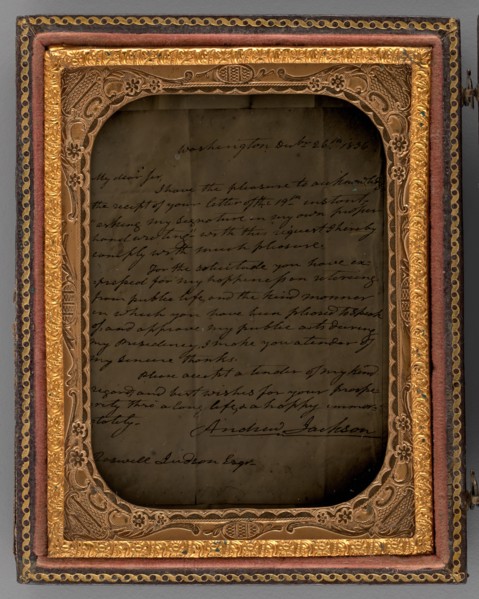 Washington Decbr 26th 1836
My dear Sir,
I have the pleasure to acknowledge
the receipt of your letter of the 19th instant
asking my signature in my own proper
hand writing with this request I hereby
comply with much pleasure.
For the solicitude you have ex
pressed for my happiness on retiring
from public life, and the kind manner
in which you have been pleased to speak
of, and approve my public acts during
my Presidency, I make you a tender of
my sincere thanks.
Please accept a tender of my kind
regard, and best wishes for your prospe
rity thro a long life, & a happy immor
tality.
Andrew Jackson
Roswell Judson Esqr.